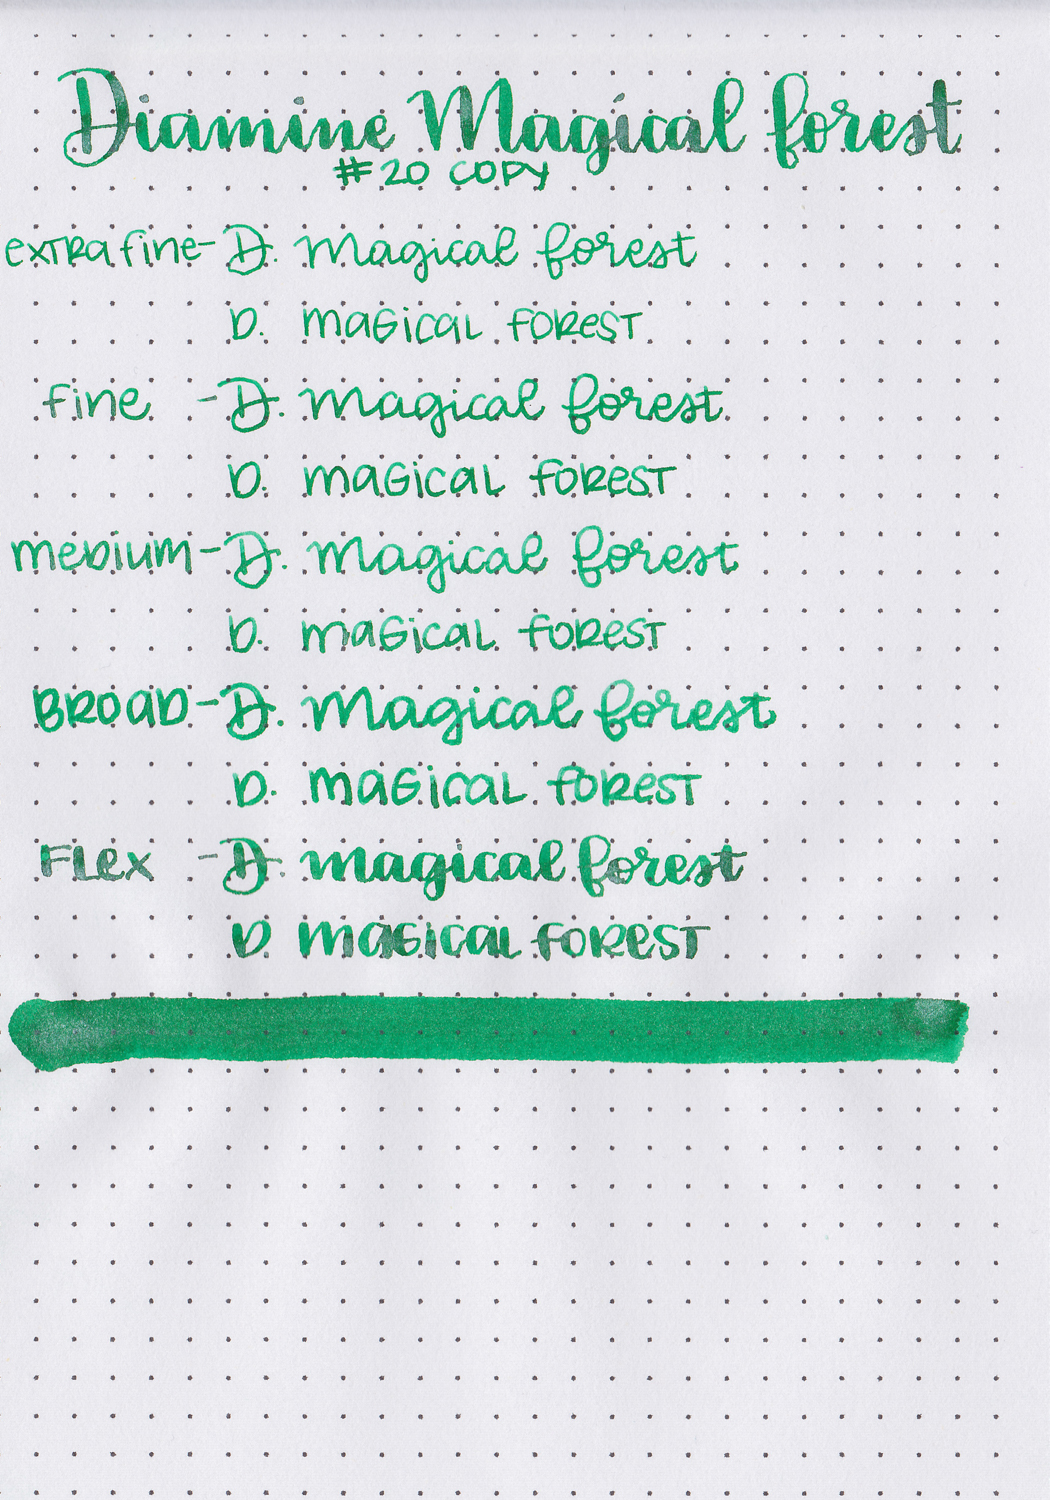 Diamine Magical forest
#20 COPY
exTRa fine - D. magical forest
D. maGical foResT
fine - D. magical forest
D. maGical foResT
meDium - D. magical forest
D. maGical foResT
BROaD - D. magical forest
D. maGical foResT
FLex - D. magical forest
D maGical foResT